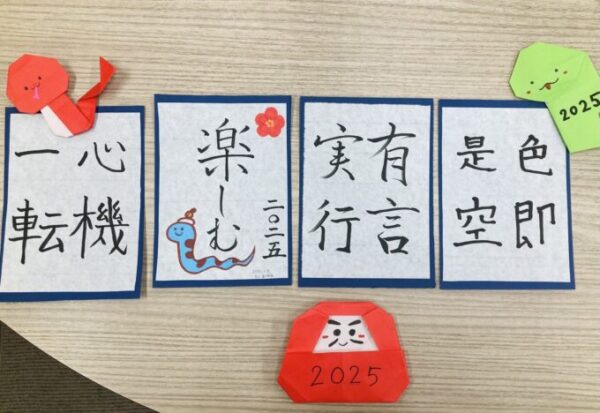 心機
一転
二〇二五
楽しむ
有言
実行
色即
是空
2025
2025